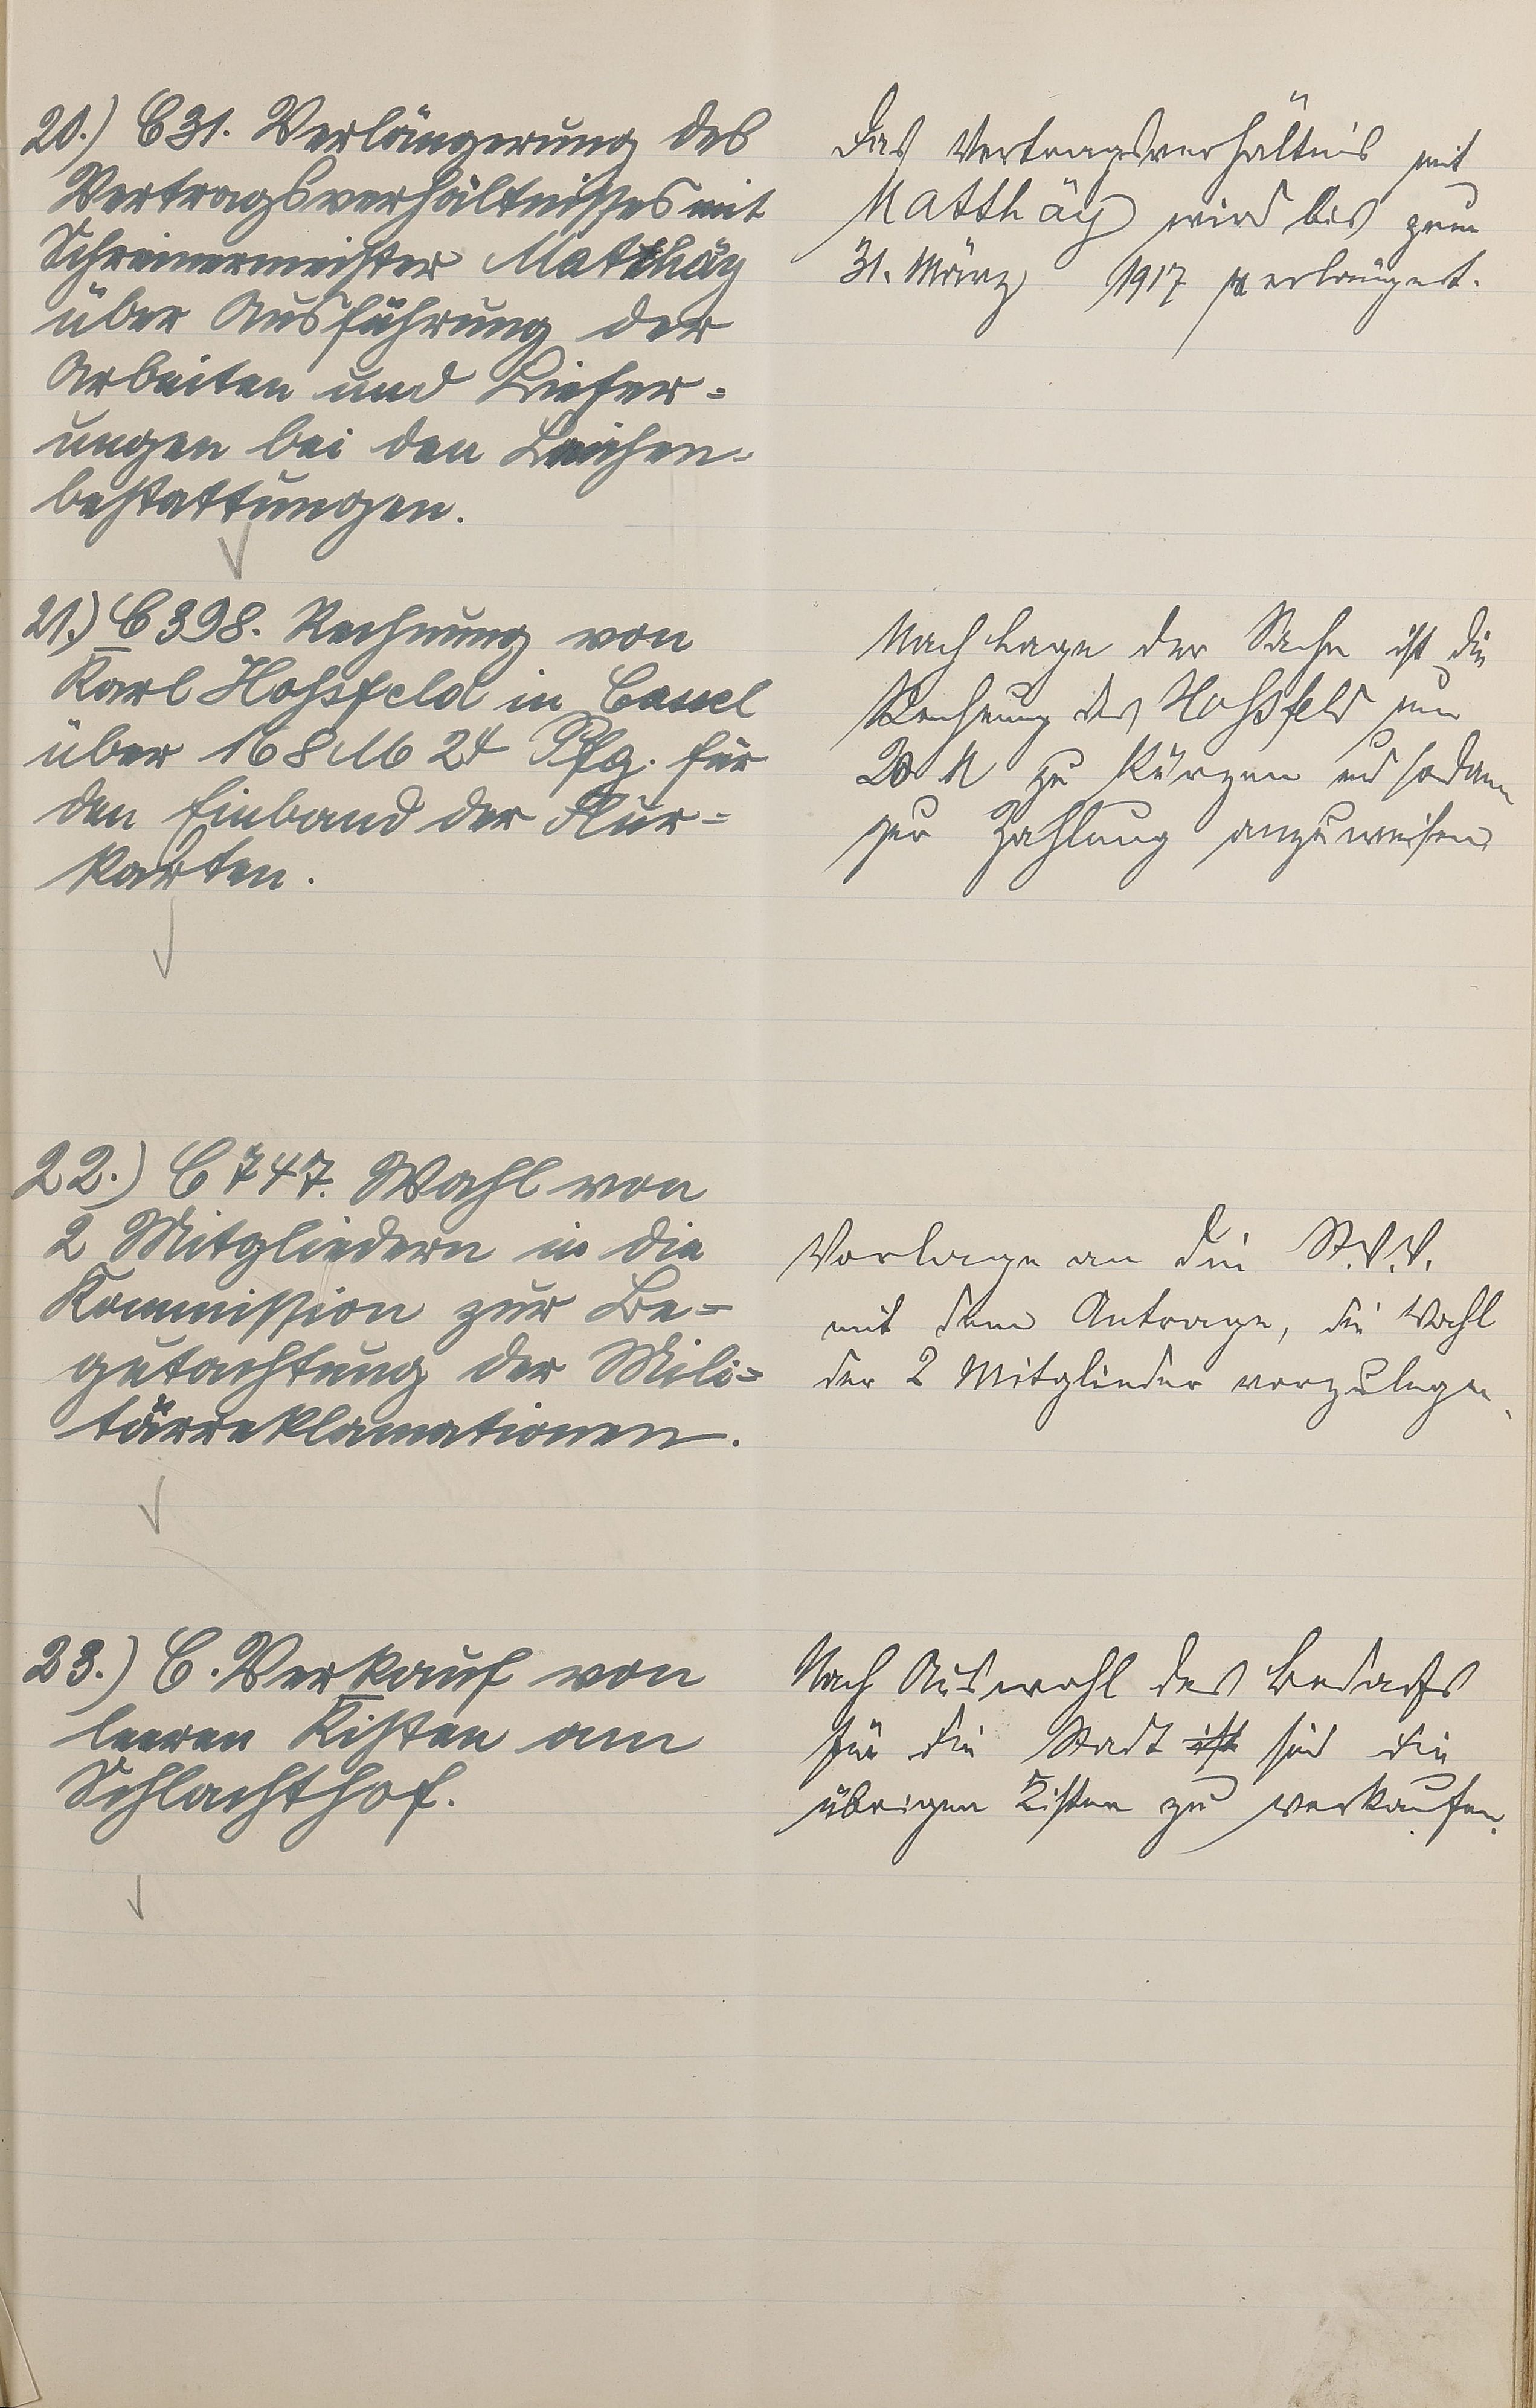 20.) C 31. Verlängerung des
Vertragsverhältnisses mit
Schreinermeister Matthäy
über Ausführung der
Arbeiten und Liefer=
ungen bei den Leichen=
bestattungen.
Das Vertragsverhältnis mit
Matthäy wird bis zum
31. März 1917 verlängert.
21.) C 398. Rechnung von
Karl Hohsfeld in Cassel
über 168 M 24 Pfg. für
den Einband der Flur=
karten.
Nach Lage der Sache ist die
Rechnung des Hohsfeld um
20 M zu kürzen und sodann
zur Zahlung anzuweisen.
22.) C 747. Wahl von
2 Mitgliedern in die
Kommission zur Be=
gutachtung der Mili=
tärreklamationen.
Vorlage an die St.V.V.
mit dem Antrage, die Wahl
der 2 Mitglieder vorzulegen.
23.) C. Verkauf von
leeren Kisten am
Schlachthof.
Nach Auswahl des Bedarfs
für die Stadt ist sind die
übrigen Kisten zu verkaufen.